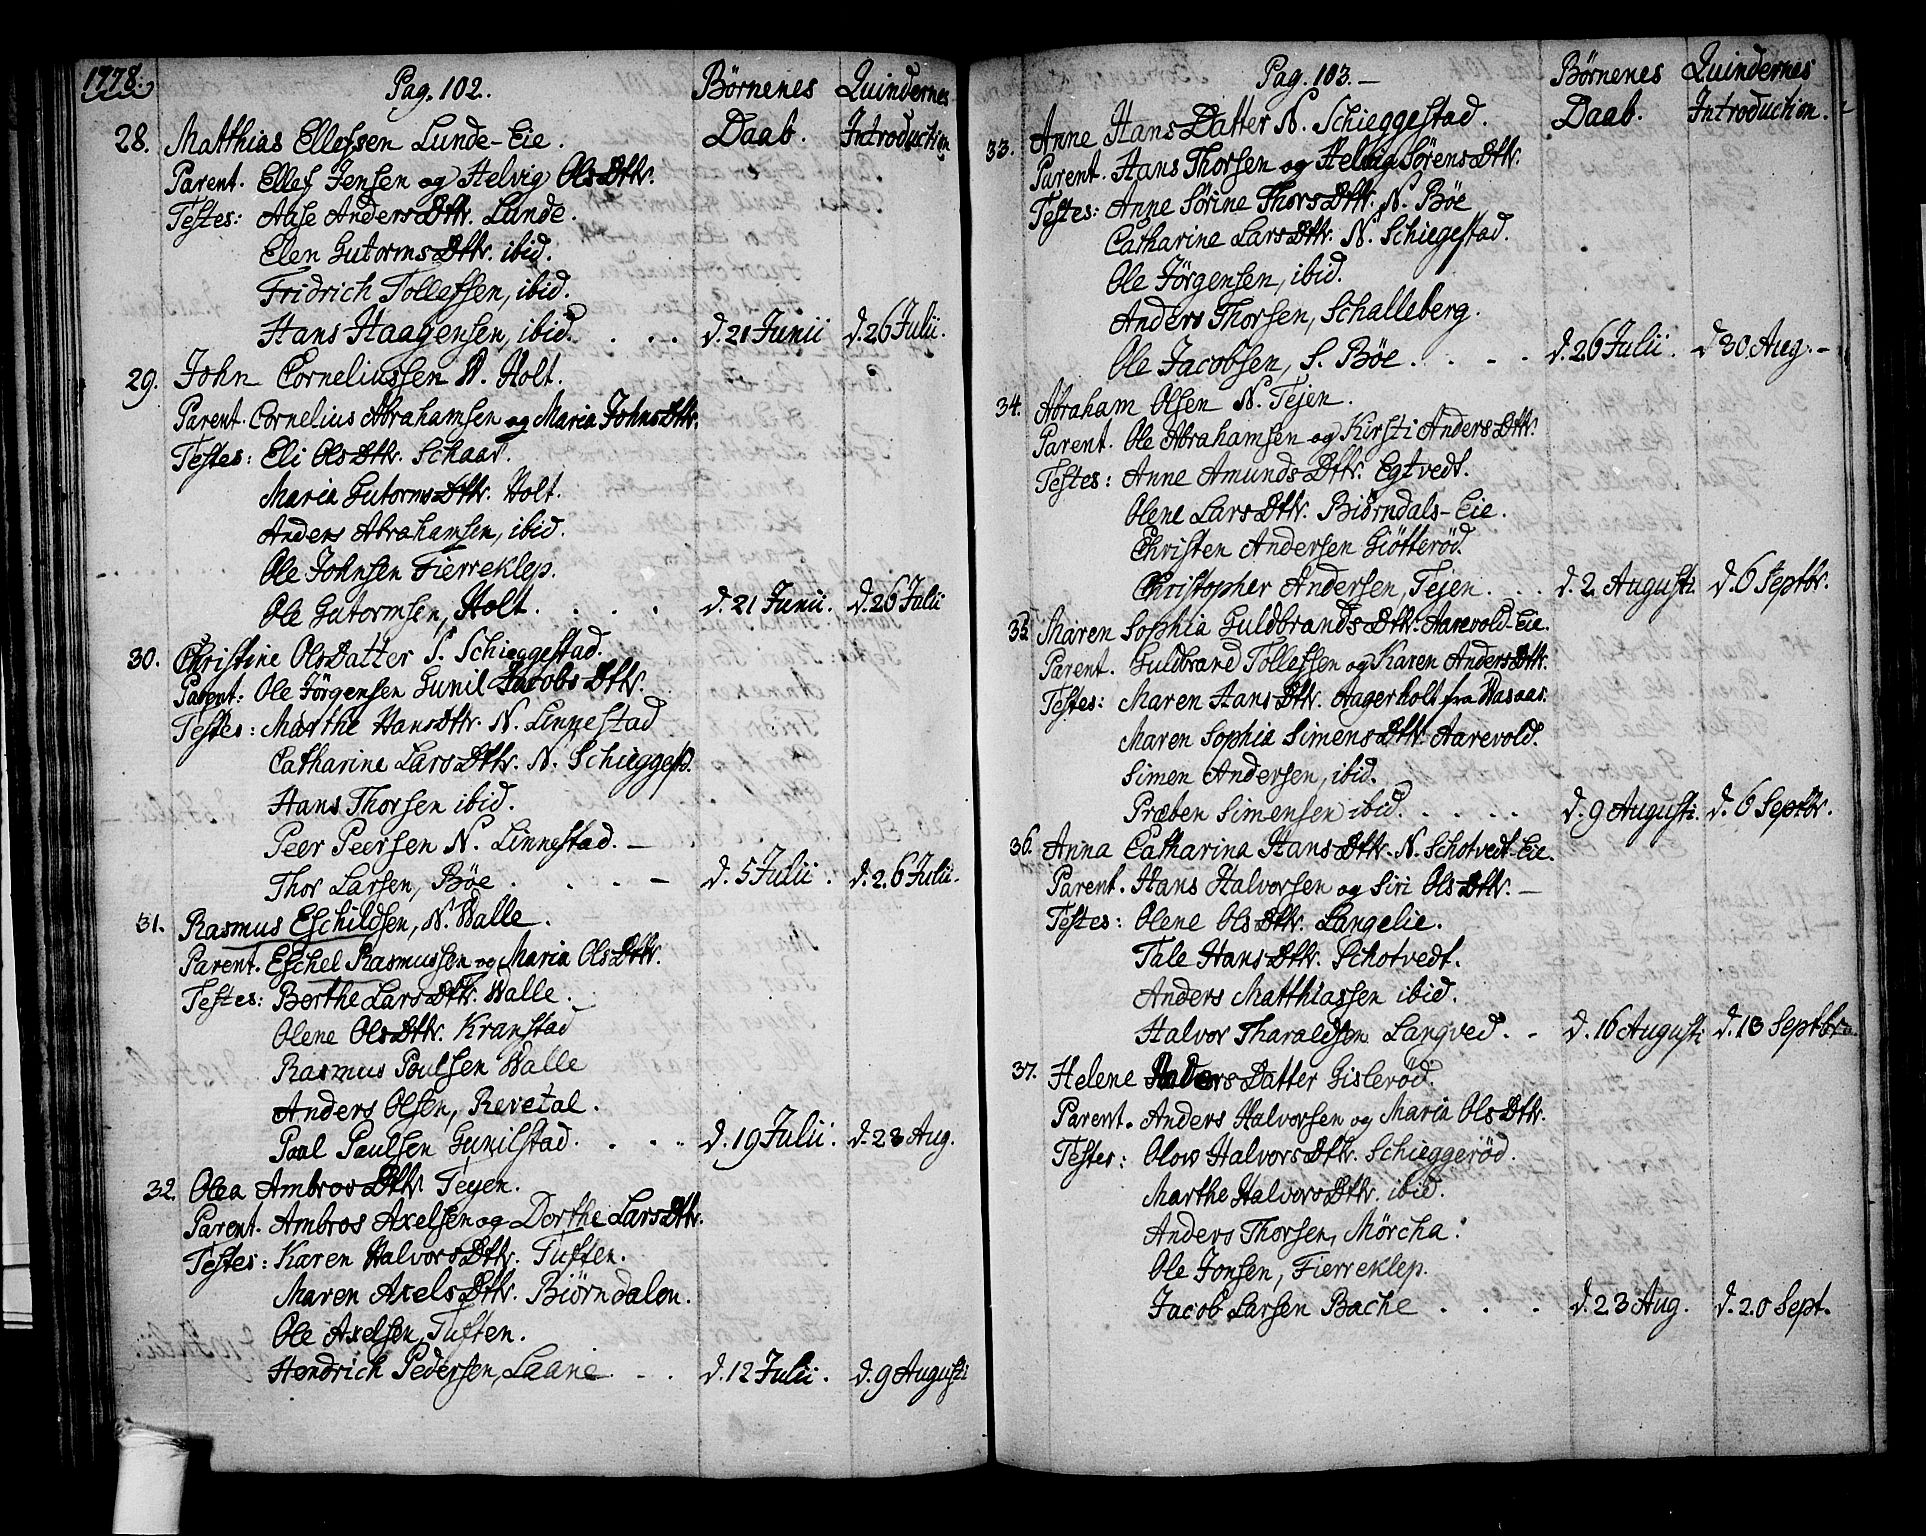 1778.
Pag. 102.
Börnenes Daab.
Quindernes Introduction
28. Matthias Ellefsen Lunde-Eie.
Parent. Ellef Jensen og Helvig OlsDttr.
Testes: Aase AndersDttr. Lunde.
Elen GutormsDttr. ibid.
Fridrich Tollefsen, ibid.
Hans Haagensen, ibid. . . . d. 21 Junii d. 26 Julii.
29. John Corneliussen N. Holt.
Parent. Cornelius Abrahamsen og Maria JohnsDttr.
Testes: Eli OlsDttr. Schaar.
Maria GutormsDttr. Holt.
Anders Abrahamsen, ibid.
Ole Johnsen Fierreklep.
Ole Gutormsen, Holt. . . . d. 21 Junii. d. 26 Julii
30. Christine OlsDatter S. Schieggestad.
Parent: Ole Jörgensen Gunil JacobsDttr.
Testes: Marthe HansDttr. N. Linnestad
Catharine LarsDttr. N. Schieggestd.
Hans Thorsen ibid.
Peer Peersen N. Linnestad. –
Thor Larsen, Böe . . . – d. 5 Julii. d. 26 Julii.
31. Rasmus Eschildsen, N. Walle.
Parent. Eschel Rasmussen og Maria OlsDttr.
Testes: Berthe LarsDttr. Walle.
Olene OlsDttr. Kranstad
Rasmus Poulsen Walle
Anders Olsen, Revetal.
Poul Paulsen Gunilstad. . . . d. 19 Julii. d. 23 Aug.
32. Olea AmbrosDttr. Teyen.
Parent. Ambros Axelsen og Dorthe LarsDttr.
Testes: Karen HalvorsDttr. Tuften.
Maren AxelsDttr. Biörndalen.
Ole Axelsen, Tuften.
Hendrich Pedersen, Laane. . . d. 12 Julii. d. 9 Augusti
Pag. 103. –
Börnenes Daab.
Quindernes Introduction.
33. Anne HansDatter N. Schieggestad.
Parent. Hans Thorsen og Helvig SörensDttr.
Testes: Anne Sörine ThorsDttr. N. Böe
Catharine LarsDttr. N. Schiegestad.
Ole Jörgensen, ibid.
Anders Thorsen, Schalleberg.
Ole Jacobsen, S. Böe . . . d. 26 Julii. d 30 Aug. –
34. Abraham Olsen N. Tejen.
Parent. Ole Abrahamsen og Kirsti AndersDttr.
Testes: Anne AmundsDttr. Egtvedt.
Olene LarsDttr. Biörndals-Eie.
Christen Andersen Giötteröd.
Christopher Andersen, Tejen . . . d. 2 Augusti. d. 6 Septbr.
35. Maren Sophia GuldbrandsDttr. Aarevold-Eie.
Parent. Guldbrand Tollefsen og Karen AndersDttr.
Testes: Maren HansDttr. Aagerholt fra Wasaas.
Maren Sophia SimensDttr. Aarevold.
Simen Andersen, ibid.
Præben Simensen ibid. . . . . d. 9 Augusti. d. 6 Septbr.
36. Anna Catharina HansDttr. N. Schotvedt-Eie.
Parent. Hans Halvorsen og Siri OlsDttr. –
Testes: Olene OlsDttr. Langelie.
Tale HansDttr. Schotvedt.
Anders Matthiassen ibid.
Halvor Tharaldsen Langved. - d. 16 Augusti d. 13 Septbr.
37. Helene AndersDatter Gisleröd.
Parent. Anders Halvorsen og Maria OlsDttr.
Testes: Olow HalvorsDttr. Schieggeröd.
Marthe HalvorsDttr. ibid.
Anders Thorsen, Mörcha.
Ole Jonsen, Fierreklep.
Jacob Larsen Bache . . . d. 23 Aug. d. 20 Sept.